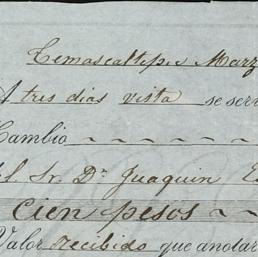 Temascaltepec Marz
A tres dias vista se serv
Cambio
del Sr. Dn Juaquin E
cien pesos
Valor recibido que anotar